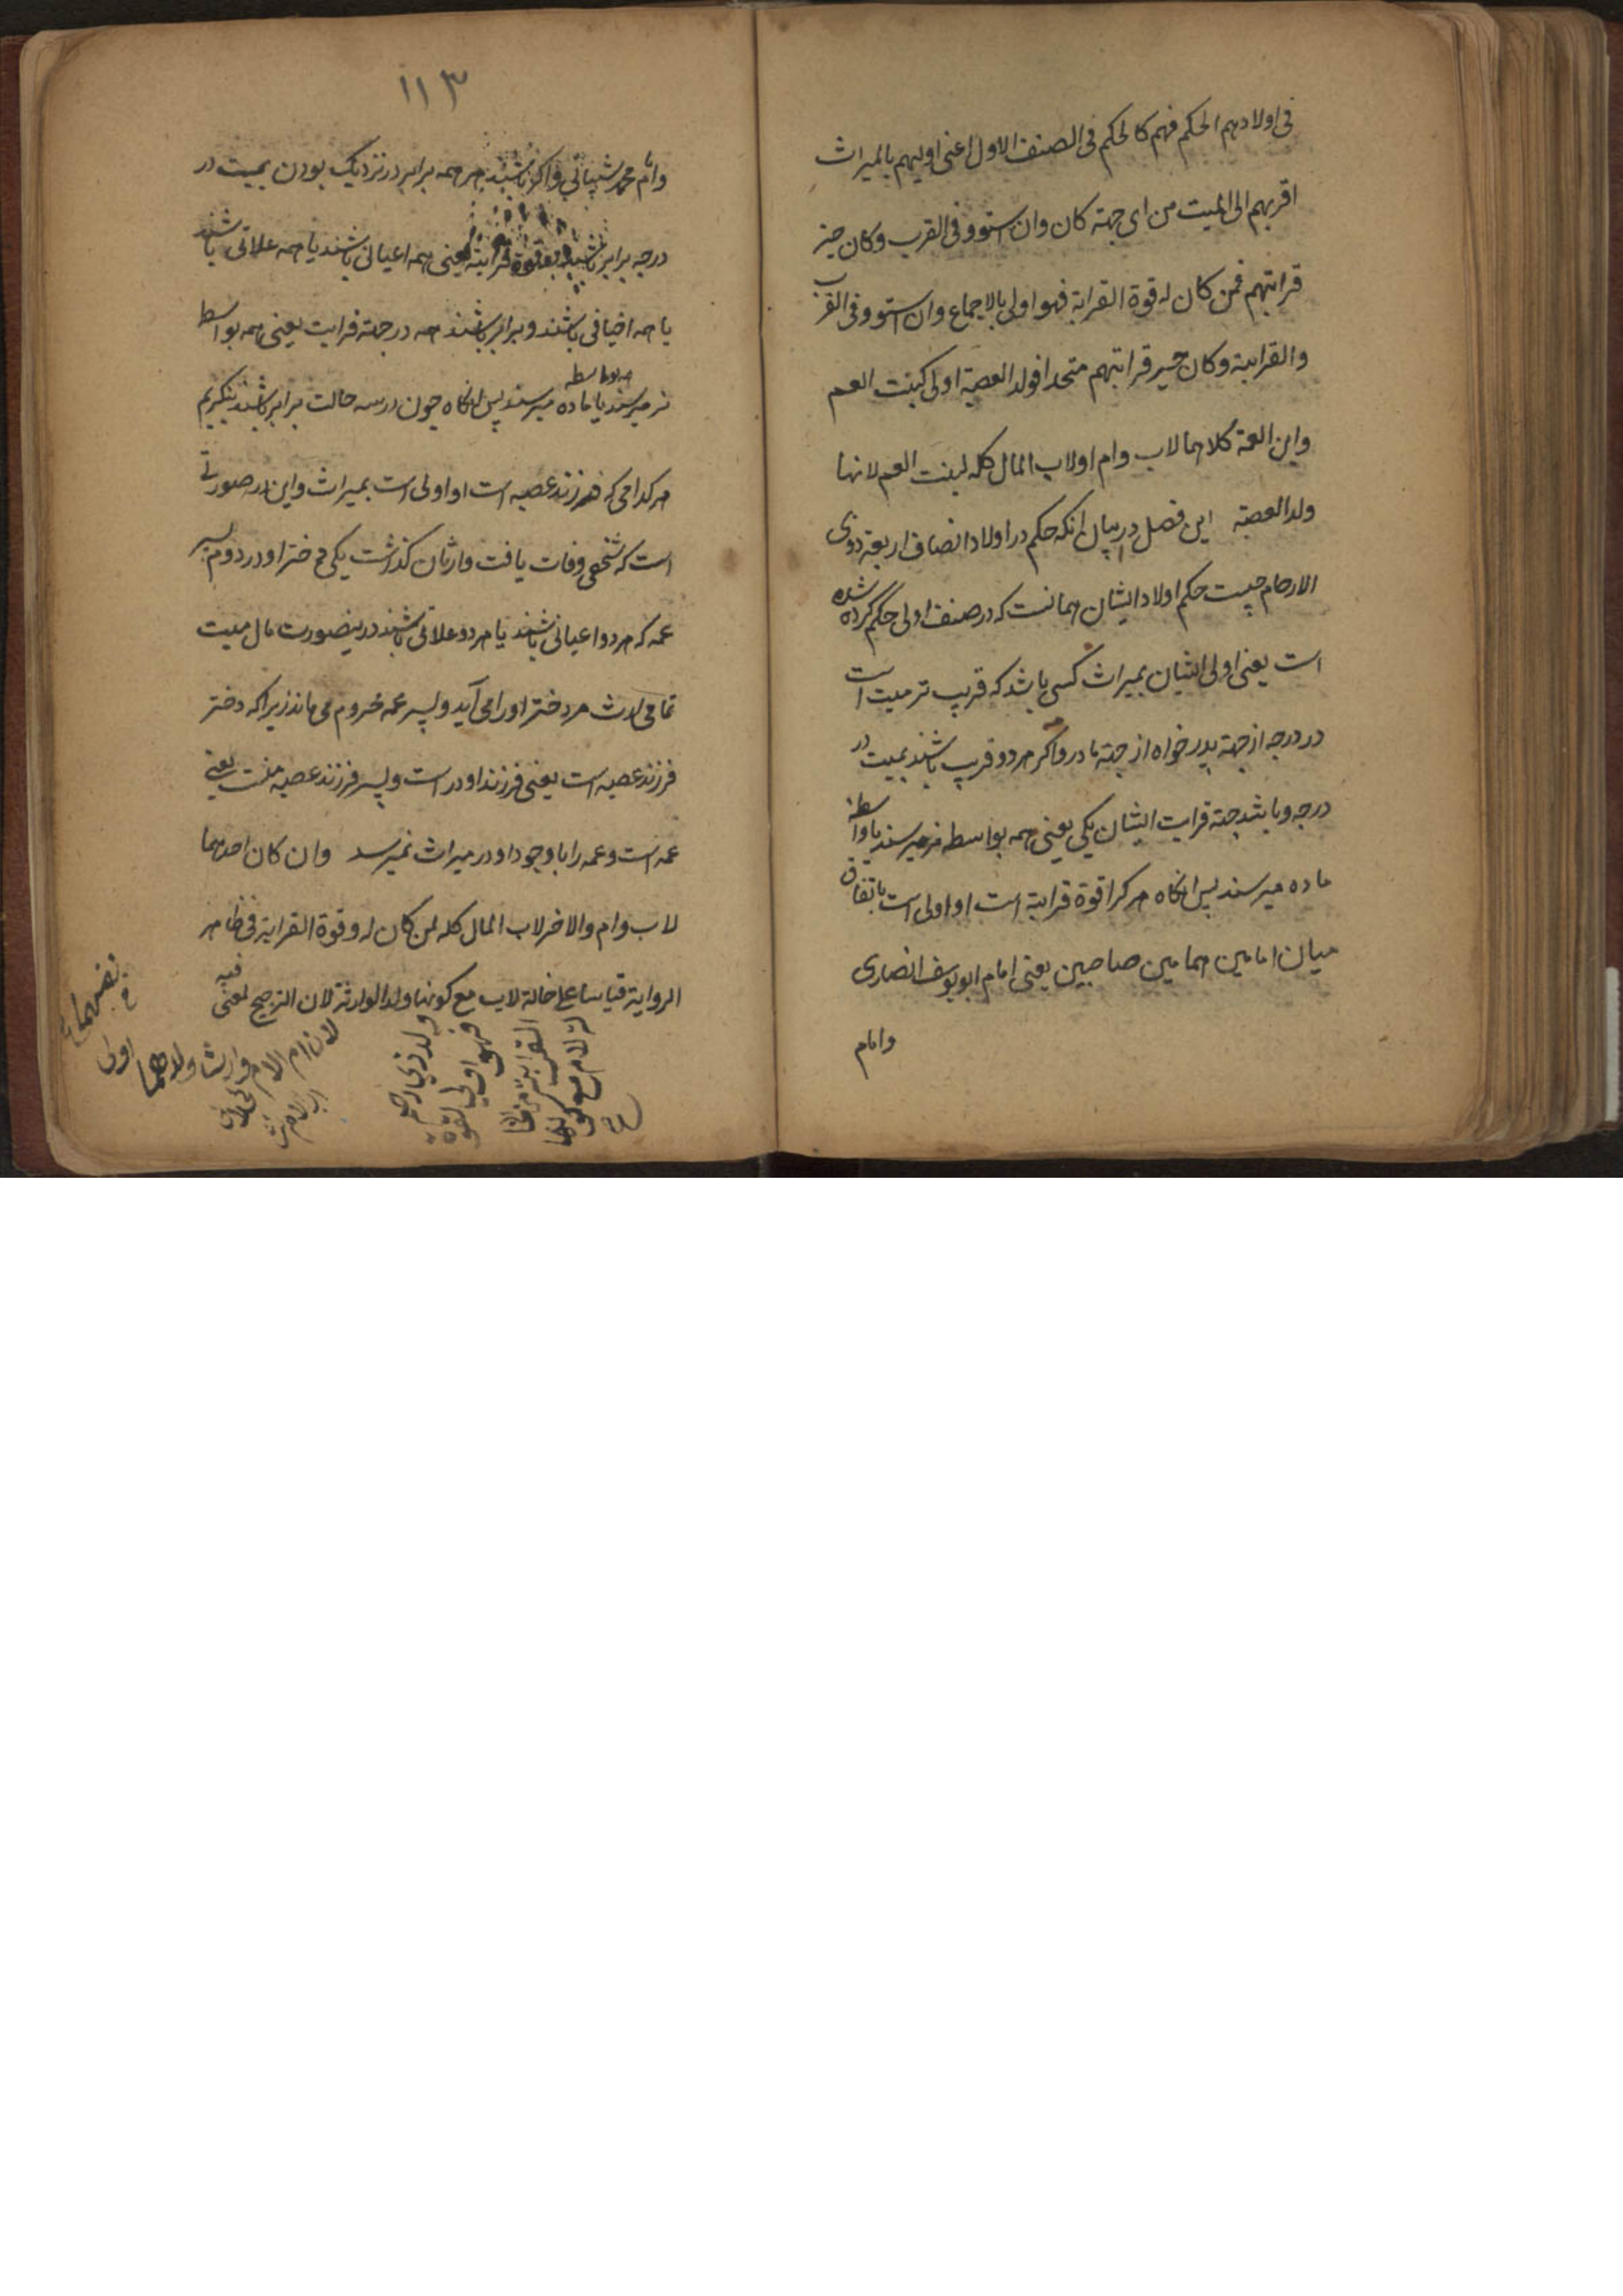 فی اولادهم الحکم فهم کالحکم فی الصنف الاول اعنی اولیهم بالمیراث
اقربهم الی المیت من ای جهته کان وان استوو فی القرب وکان حیز
قرابتهم فمن کان له قوة القرابة فهو اولی بالاجماع وان استوو فی القرب
والقرابة وکان حیز قرابتهم متحدا فولد العصبة اولی کبنت العم
وابن العمة کلاهما لاب وام اولاب المال کله لبنت العم لانها
ولد العصبة این فصل در بیان انکه حکم در اولاد انصاف اربعة ذوی
الارحام چیست حکم اولاد ایشان همانست که در صنف اولی حکم کرده شده
است یعنی اولی ایشان بمیراث کسی باشد که قریب تر میت است
در درجه از جهة پدر خواه از جهة مادر واکر هر دو قریب باشند بمیت در
درجه وباشد جهته قرابت ایشان یکی یعنی همه بواسطه نر میرسند یا واسطه
ماده میرسند پس انکاه هر کرا قوة قرابة است او اولی است باتفاق
میان امامین همامین صاحبین یعنی امام ابویوسف انصاری
وامام
۱۱۳
وامام محمد شیبانی واکر باشند هر همه برابر در نزدیک بودن بمیت در
درجه برابر باشند وبقوة قرابة یعنی همه اعیانی باشند یا همه علاتی باشند
یا همه اخیافی باشند وبرابر باشند همه در جهته قرابت یعنی همه بواسطه
نر میرسند یا همه بواسطه ماده میرسند پس انکاه چون در سه حالت برابر باشند بنکریم
هر کدامی که فرزند عصبه است او اولی است بمیراث واین در صورتی
است که شخصی وفات یافت وارثان کذاشت یکی دختر اودر دوم پسر
عمه که هر دو اعیانی باشند یا هر دو علاتی باشند درینصورت مال میت
تمامی ارث مر دختر اودر امی آید وپسر عمه محروم می ماند زیراکه دختر
فرزند عصبه است یعنی فرزند اودر است وپسر فرزند عصبه نیست یعنی
عمه است وعمه را با وجود اودر میراث نمیرسد وان کان احدهما
لاب وام والاخر لاب المال کله لمن کان له وقوة القرابة فی ظاهر
الروایة قیاسا علی خالة لاب مع کونها ولد الوارثة لان الترجیح لمعنی فیه
ولد ذی رحم
فهو اولی لقوة
القرابة من
لام مع کونها
لان ام الام وارثة
اولی